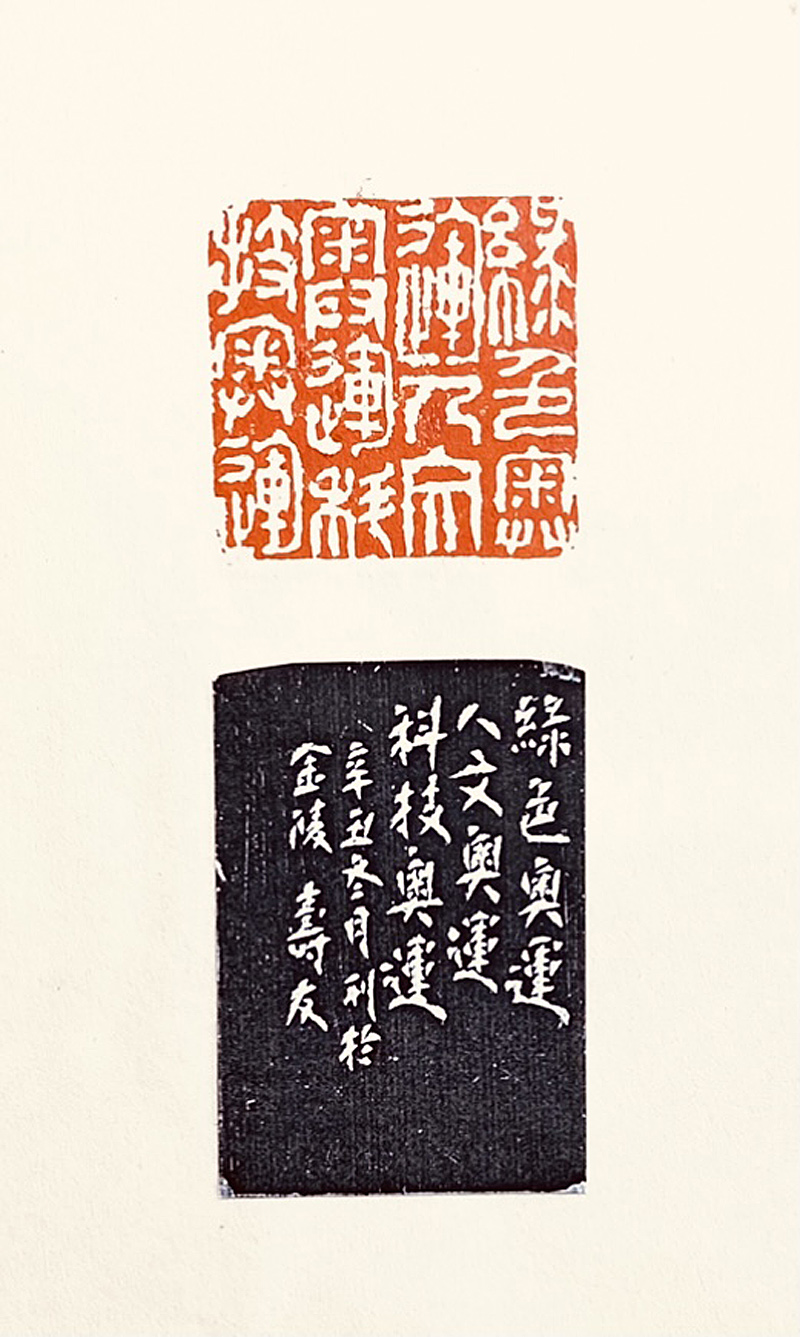 綠色奧
運人文
奧運科
技奧運
綠色奧運
人文奧運
科技奧運
辛丑冬月刊於
金陵 壽友